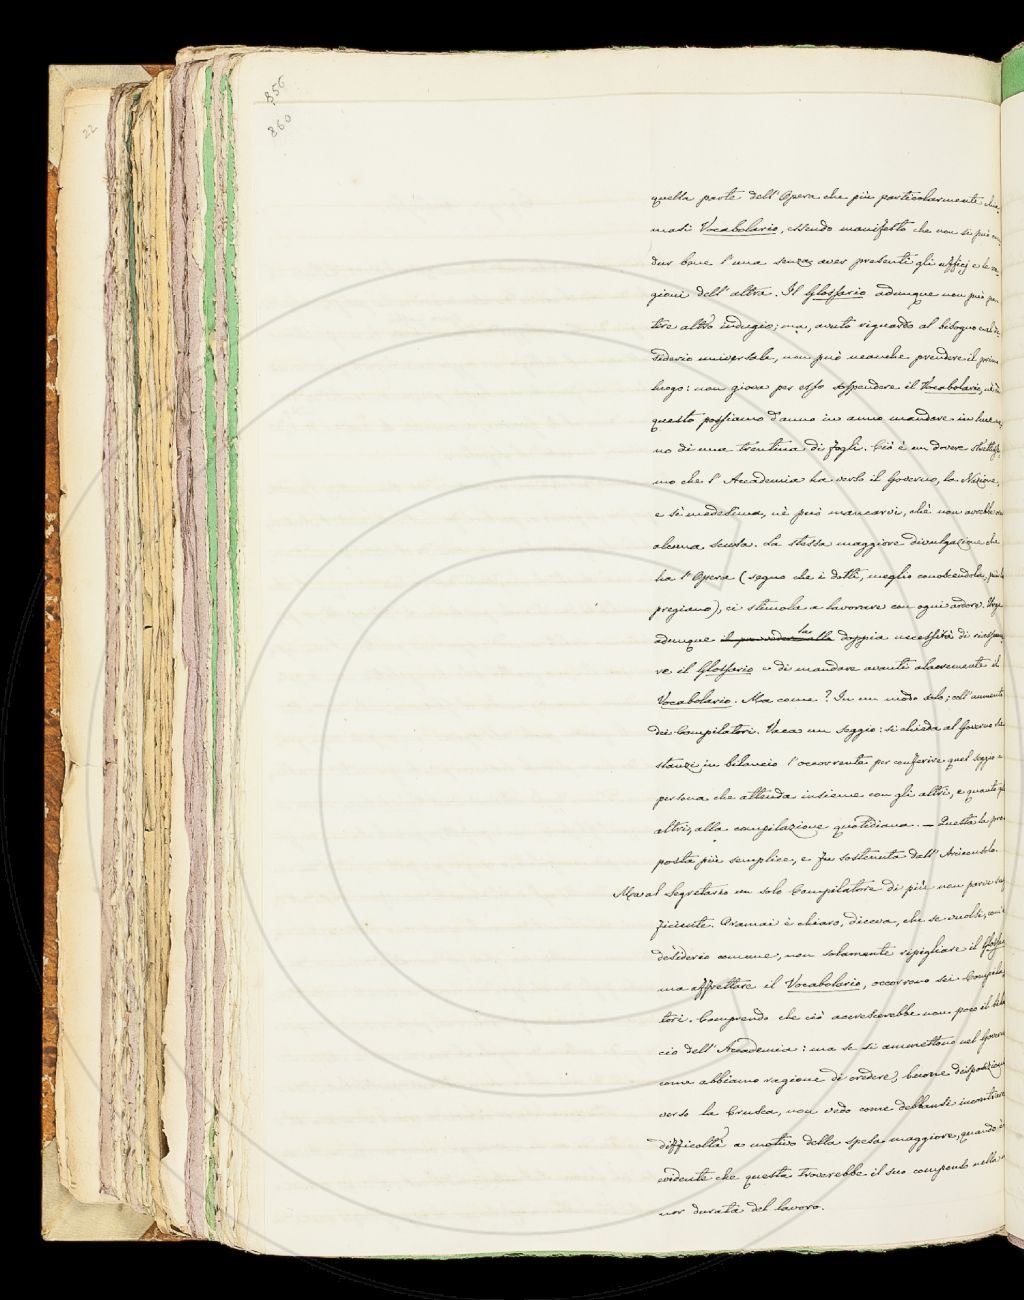 22
856
860
quella parte dell'Opera che più particolarmente chia-
masi Vocabolario, essendo manifesto che non si può con-
dur bene l'una senza aver presenti gli ufficj e le ra-
gioni dell'altra. Il Glossario adunque non può pa-
tire altro indugio; ma, avuto riguardo al bisogno e al de-
siderio universale, non può neanche prendere il primo
luogo: non giova per esso sospendere il Vocabolario, nè di
questo possiamo d'anno in anno mandare in luce me-
no di una trentina di fogli. Ciò è un dovere strettissi-
mo che l'Accademia ha verso il Governo, la Nazione,
e sè medesima, nè può mancarvi, chè non avrebbe
alcuna scusa. La stessa maggiore divulgazione che
ha l'Opera (segno che i dotti, meglio conoscendola, più la
pregiano), ci stimola a lavorare con ogni ardore. Urge
adunque la doppia necessità di riassume-
re il Glossario e di mandare avanti alacremente il
Vocabolario. Ma come? In un modo solo; coll'aumento
dei Compilatori. Vaca un seggio: si chieda al Governo che
stanzi in bilancio l'occorrente per conferire quel seggio a
persona che attenda insieme con gli altri, e quanto gli
altri, alla compilazione quotidiana. — Questa la pro-
posta più semplice, e fu sostenuta dall'Arciconsolo.
Ma al Segretario un solo Compilatore di più non parve suf-
ficiente. Oramai è chiaro, diceva, che se vuolsi, com'è
desiderio comune, non solamente ripigliare il Glossario
ma affrettare il Vocabolario, occorrono sei Compila-
tori. Comprendo che ciò accrescerebbe non poco il bilan-
cio dell'Accademia: ma se si ammettono nel Governo
come abbiamo ragione di credere, buone disposizioni
verso la Crusca, non vedo come debbansi incontrare
difficoltà a motivo della spesa maggiore, quando è
evidente che questa troverebbe il suo compenso nella mi-
nor durata del lavoro.